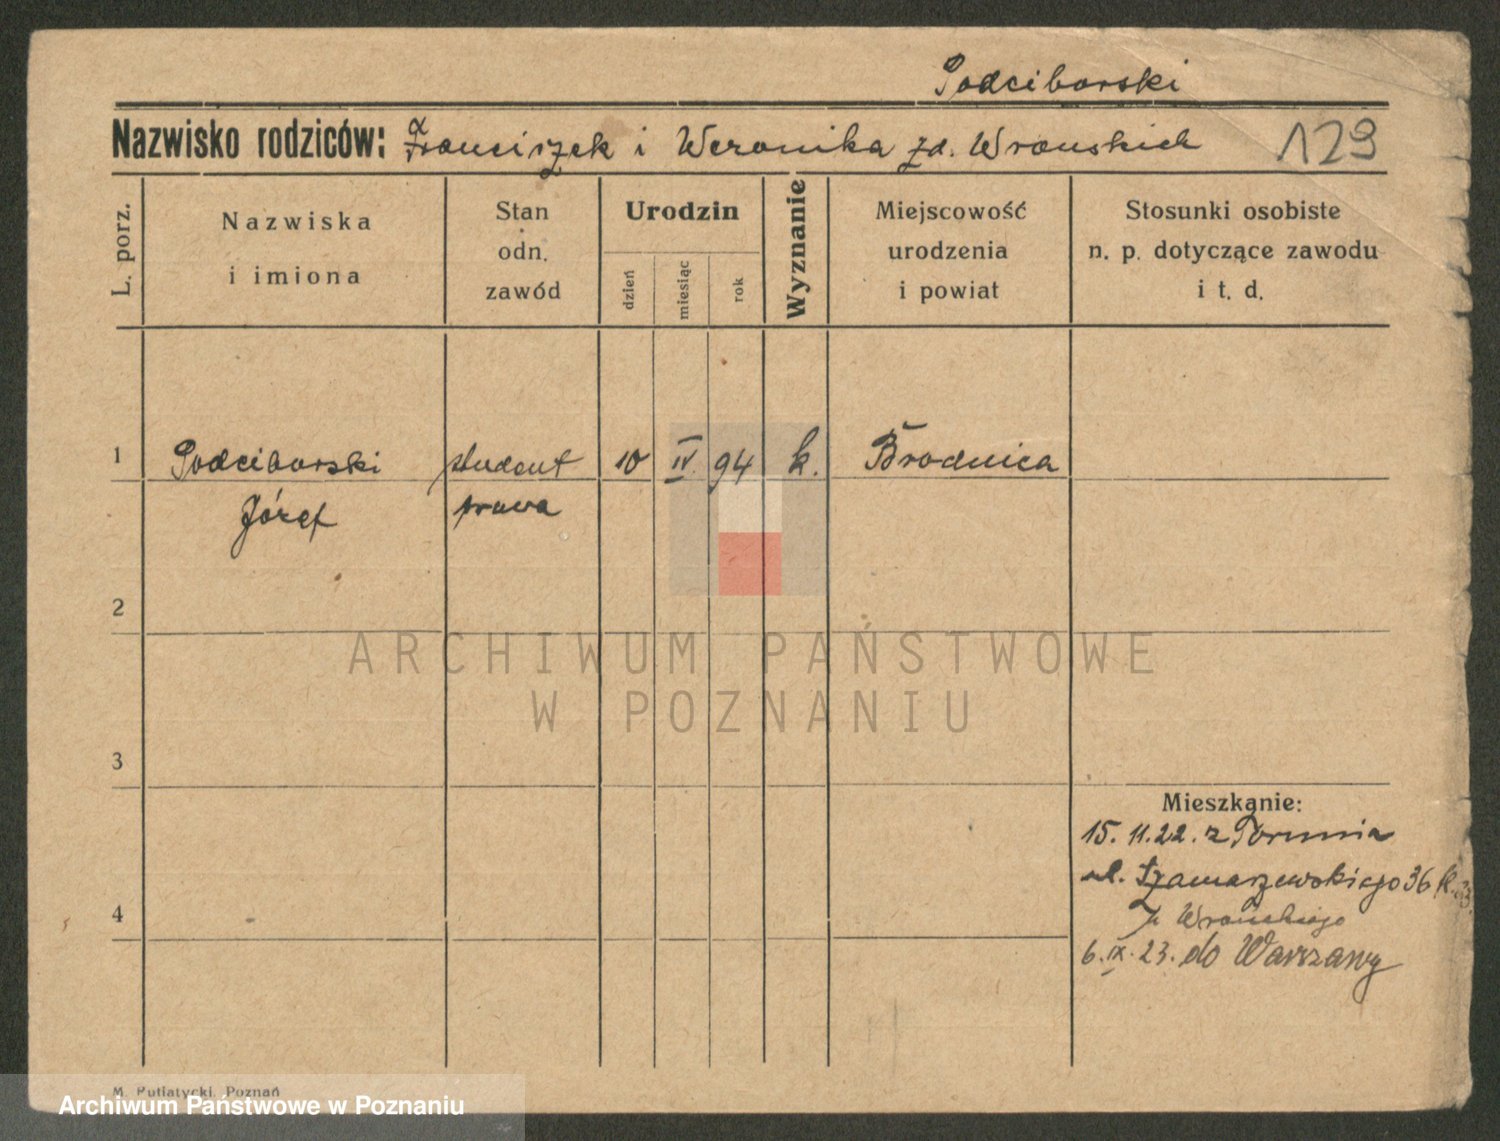 Podciborski
Nazwisko rodziców: Franciszek i Weronika zd. Wrońskich 129
L. porz.
Nazwiska
i imiona
Stan
odn.
zawód
Urodzin
dzień
miesiąc
rok
Wyznanie
Miejscowość
urodzenia
i powiat
Stosunki osobiste
n. p. dotyczące zawodu
i t. d.
1 Podciborski student 10 IV. 94 k. Brodnica
Józef prawa
2
ARCHIWUM PAŃSTWOWE
W POZNANIU
3
Mieszkanie:
15. 11. 22. z Torunia
ul. Szamarzewskiego 36 k.
4
p. Wrońskiego
6. IX. 23. do Warszawy
M. Putiatycki, Poznań
Archiwum Państwowe w Poznaniu